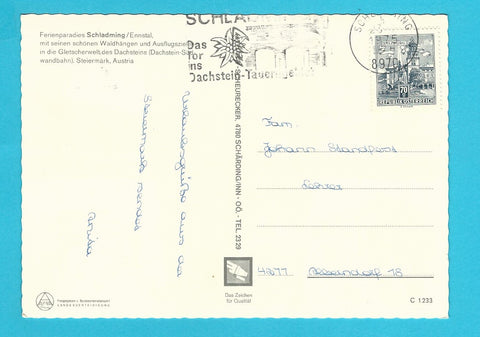 Ferienparadies Schladming/Ennstal,
mit seinen schönen Waldhängen und Ausflugszielen
in die Gletscherwelt des Dachsteins (Dachstein-Süd-
wandbahn). Steiermark, Austria
SCHLADMING
Das
Tor
ins
Dachstein-Tauern
SCHLADMING
8970
70
REPUBLIK ÖSTERREICH
4780 SCHÄRDING/INN - OÖ. - TEL. 2329
Fam.
Johann
Lehrer
4277
18
Urlaubsgrüße aus der
Steiermark sendet
Anita
Das Zeichen
für Qualität
C 1233